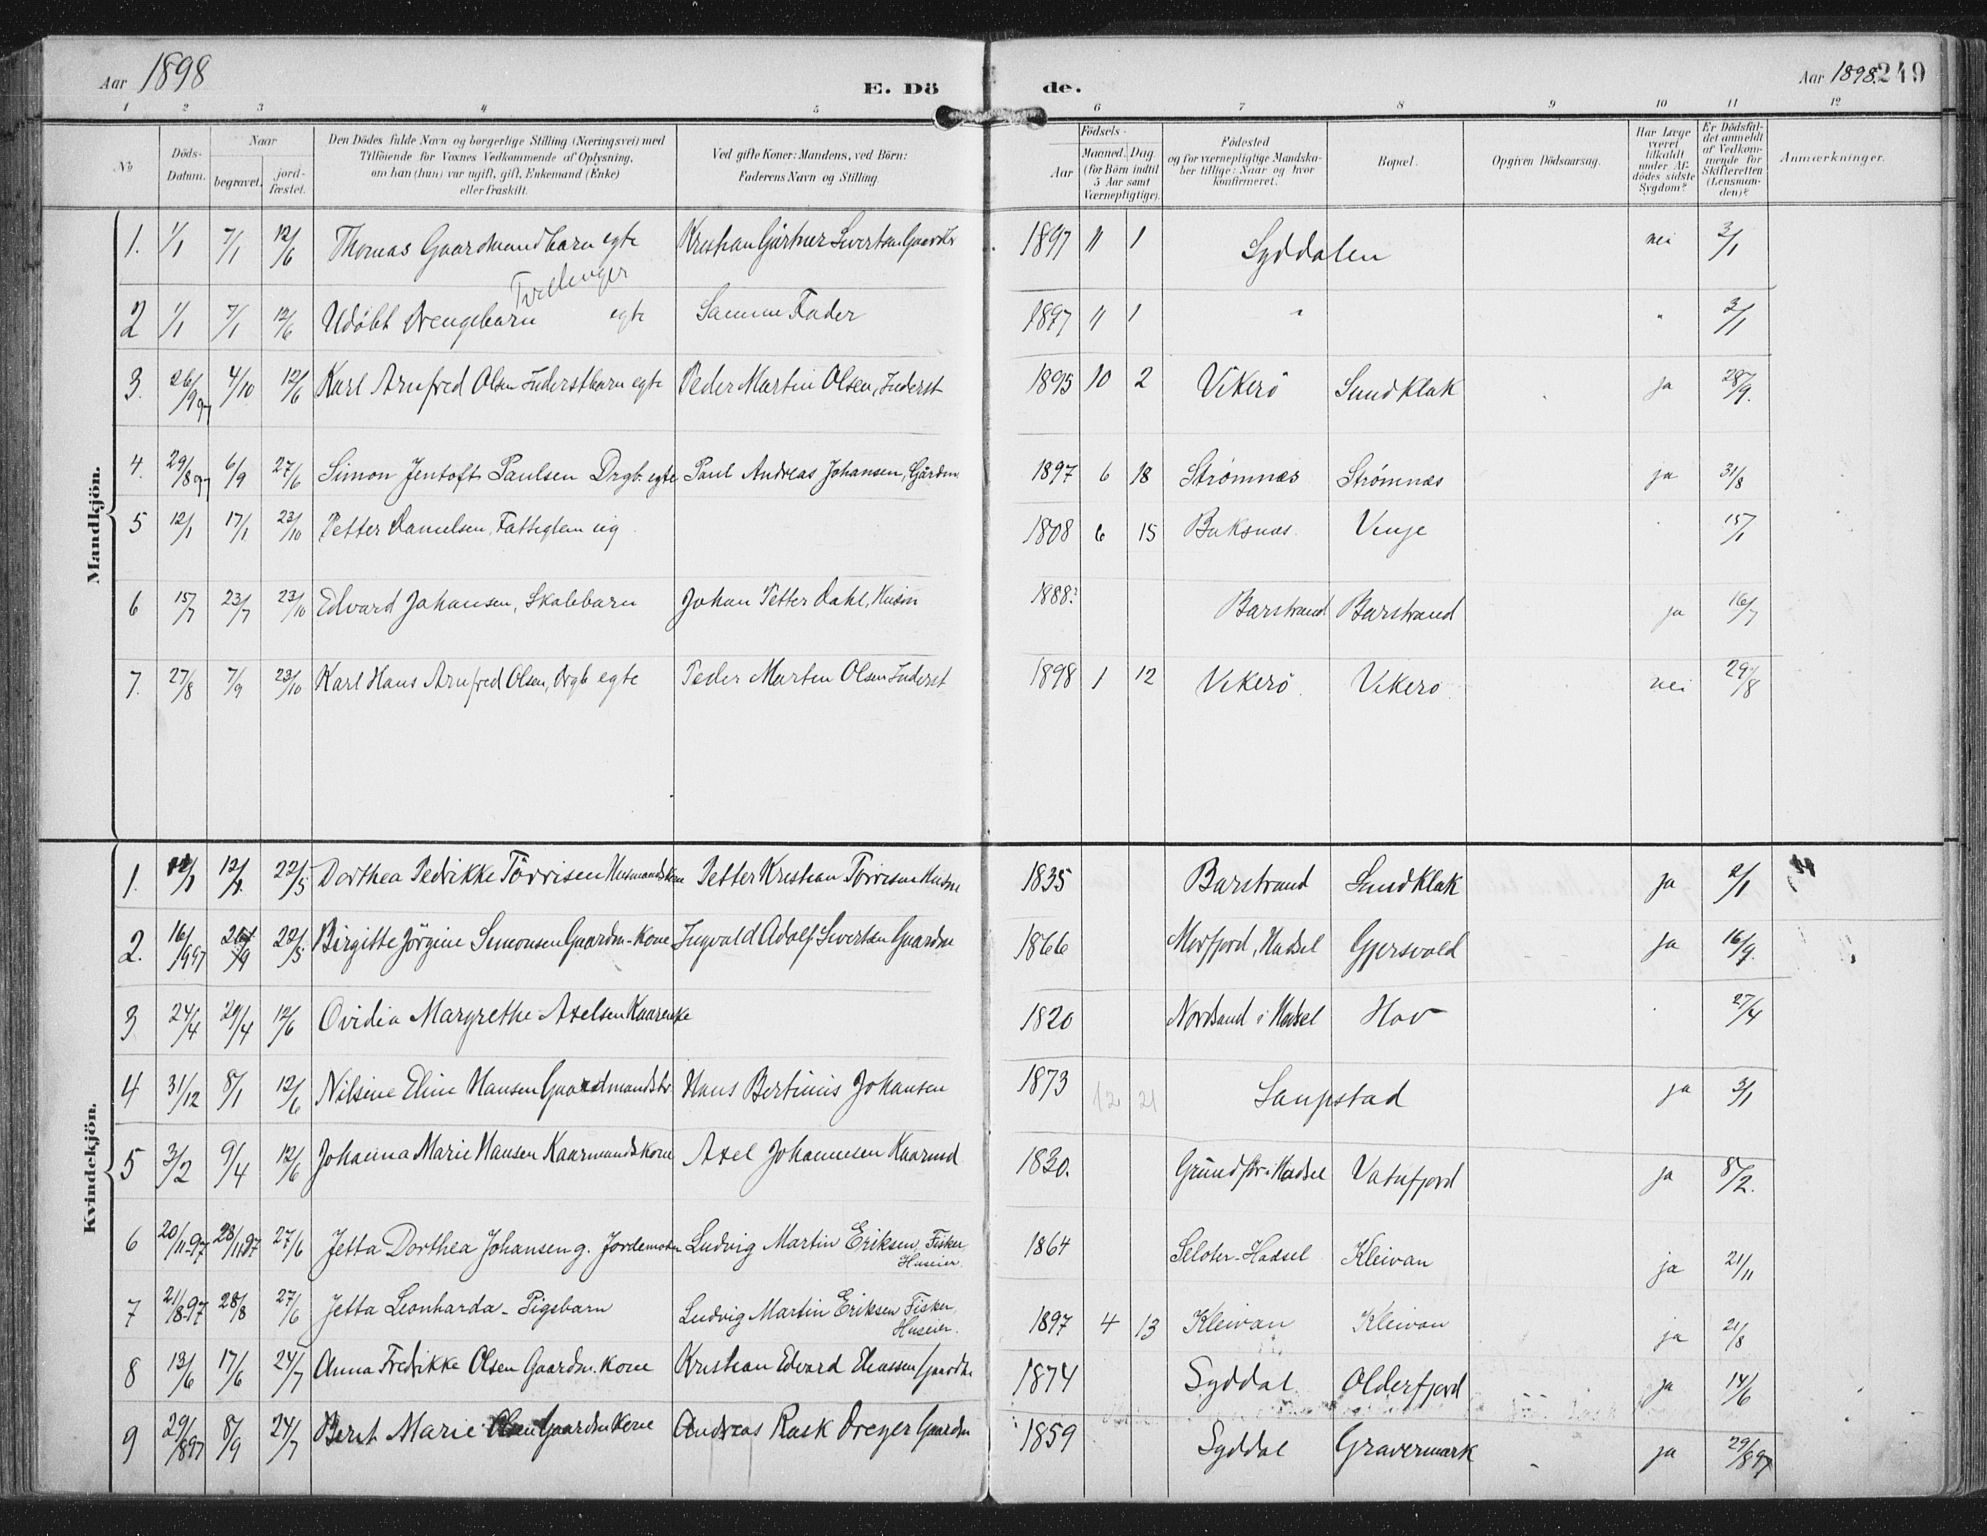 Aar 1898
E. Dö de.
Aar 1898. 249
1 2 3 4 5 6 7 8 9 10 11 12
No
Döds-Datum.
Naar
begravet.
jord-fæstet.
Den Dödes fulde Navn og borgerlige Stilling (Næringsvei) med
Tilföiende for Voxnes Vedkommende af Oplysning,
om han (hun) var ugift, gift, Enkemand (Enke)
eller fraskilt.
Ved gifte Koner: Mandens, ved Börn:
Faderens Navn og Stilling
Födsels-
Aar
Maaned. Dag
(for Börn indtil
5 Aar samt
Værnepligtige).
Födested
og for værnepligtige Mandska-
ber tillige: Naar og hvor
konfirmeret.
Bopæl.
Opgiven Dödsaarsag.
Har Læge
været
tilkaldt
under Af-
dödes sidste
Sygdom?
Er Dödsfal-
det anmeldt
af Vedkom-
mende for
Skifteretten
(Lensman-
den)?
Anmærkninger.
Mandkjön.
1. 1/1 7/1 12/6 Thomas Gaardmandbarn egte Kristian Gärtner Sivertsen 1897 11 1 Syddalen nei 3/1
Tvillinger
2 1/1 7/1 12/6 Udöbt Drengebarn egte Samme Fader 1897 11 1 " " 3/1
3. 26/9 97 4/10 12/6 Karl Arnfred Olsen Inderstbarn egte Peder Martin Olsen, Inderst 1895 10 2 Vikerö Sundklak ja 28/9.
4. 29/8 97 6/9 27/6 Simon Jentoft Paulsen Drgb. egte Paul Andreas Johansen, Gårdm. 1897 6 18 Strømnæs Strømnæs ja 31/8
5 12/1 17/1 23/10 Petter Danielsen, Fattiglem ug 1808 6 15 Buksnæs. Vinje 15/1
6 15/7 23/7 23/10 Edvard Johansen, Skolebarn Johan Petter Dahl, Husm 1888? Barstrand Barstrand ja 16/7
7. 27/8 7/9 23/10 Karl Hans Arnfred Olsen, Drgb egte Peder Martin Olsen Inderst 1898 1 12 Vikerö. Vikerö. nei 29/8
Kvindekjön.
1. 22/5 Dorthea Pedrikke Törrisen Husmandskone Petter Kristian Törrisen Husm 1835 Barstrand Sundklak ja 2/1
2. 16/9 97 22/5 Birgitte Jörgine Simonsen Gaardm-kone Ingvald Adolf Sivertsen Gaardm 1866 Morfjord, Hadsel Gjersvold ja 16/9.
3 24/4 29/4 12/6 Ovidia Margrethe Axelsen 1820 Nordsand i Hadsel Hov 27/4
4 31/12 8/1 12/6 Nilsine Eline Hansen Gaardmandsbr Hans Bertinius Johansen 1873 12 21 Laupstad ja 3/1
5 3/2 9/4 12/6 Johanna Marie Hansen Kaarmandskone Axel Johannesen Kaarmd 1830. Grundfør i Hadsel Vatnfjord ja 8/2.
6 20/11-97 23/11 97 27/6 Jetta Dorthea Johansen g. Jordemoder Ludvig Martin Eriksen, Fisker 1864 Seloter-Hadsel Kleivan ja 21/11
Huseier.
7 21/8-97 28/8 27/6 Jetta Leonharda - Pigebarn Ludvig Martin Eriksen Fisker, 1897 4 13 Kleivan Kleivan ja 21/8
Huseier.
8 13/6 17/6 24/7 Anna Fredrikke Olsen Gaardm. kone Kristian Edvard Eliassen Gaardm. 1874 Syddal. Olderfjord ja 14/6
9 29/8 97 8/9 24/7 Berit Marie Olsen Gaardm kone Andreas Rask Dreyer Gaardm 1859 Syddal Gravermark ja 29/8 97